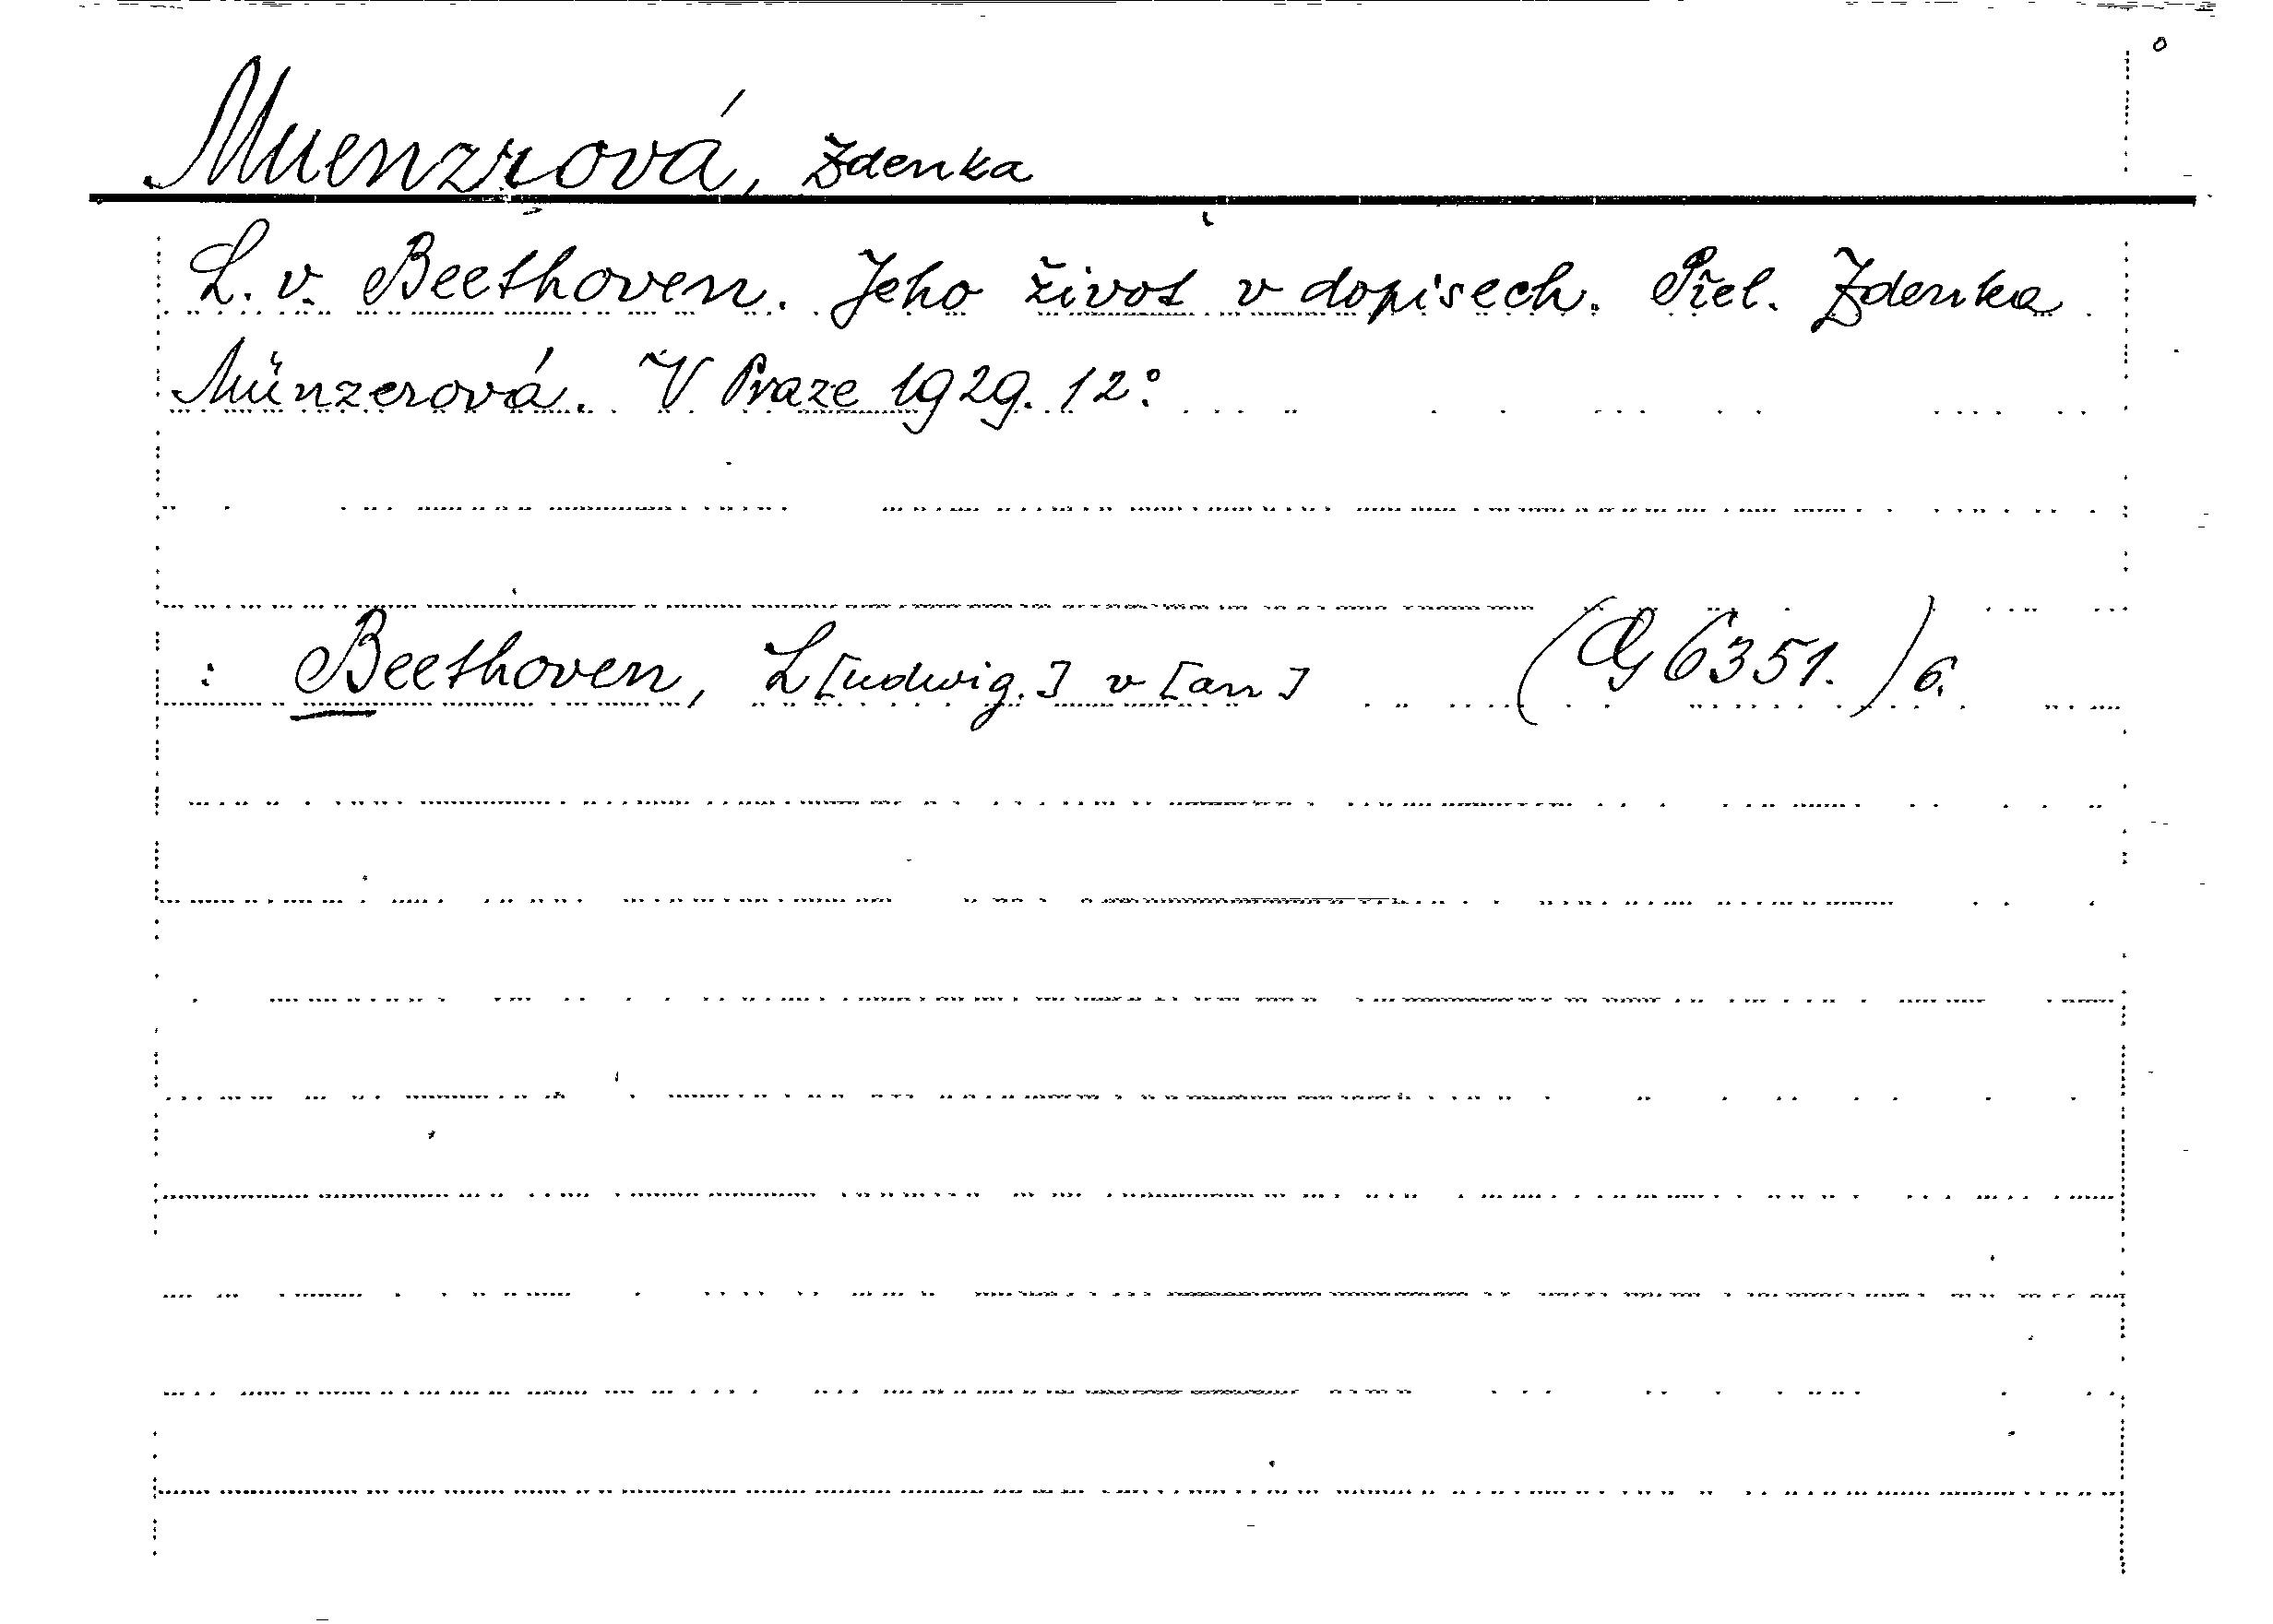 Muenzrová, Zdenka
L. v. Beethoven. Jeho život v dopisech. Přel. Zdenka
Münzerová. V Praze 1929. 12°
: Beethoven, L[udwig.] v[an] (G 6351.) 6.